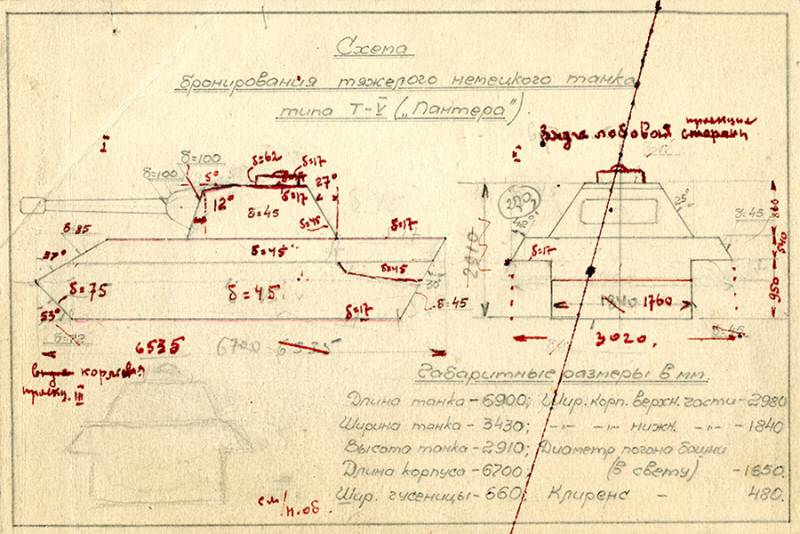 Схема
бронирования тяжелого немецкого танка
типа Т-V („Пантера")
I
вид с лобовой проекции стороны
δ=100
δ=100
δ=62
δ=17
δ=17
5°
12°
27°
δ=45
δ=45
δ=85
37°
δ=17
δ=45
δ=45
δ=75
δ=45
30°
δ=45
53°
δ=17
6535
6700
6535
2910
δ=17
25°
δ=45
950
1840 1760
3020.
δ=45
проекц. III
см/
н.об.
Габаритные размеры в мм.
Длина танка-6900; Шир. корп. верхн. части-2980
Ширина танка - 3430; -"- -"- нижн. -"- -1840
Высота танка-2910; Диаметр погона башни
Длина корпуса-6700; (в свету) -1650.
Шир. гусеницы-660; Клиренс - 480.